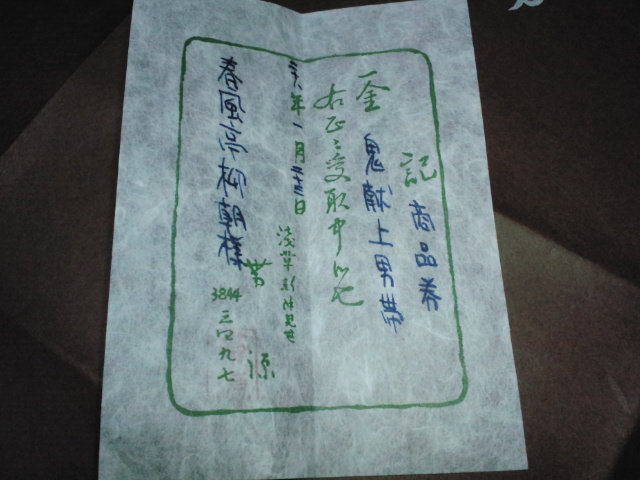 記 商品券
一金 鬼献上男帯
右正ニ受取申候也
二六年一月二十三日
浅草新仲見世
春風亭柳朝様
3844
三四九七